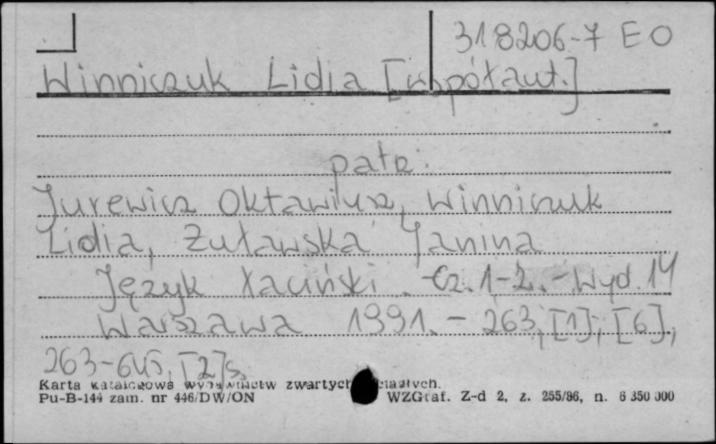 318206-7 EO
Winniczuk Lidia [współaut.]
patrz:
Jurewicz Oktawiusz, Winniczuk
Lidia, Żuławska Janina
Język łaciński. Cz. 1-2. - Wyd. 14
Warszawa 1991. - 263, [1]; [6],
263-645, [2] s.
Karta katalogowa wydawnictw zwartych
Pu-B-144 zam. nr 446/DW/ON WZGraf. Z-d 2, z. 255/86, n. 6 350 000